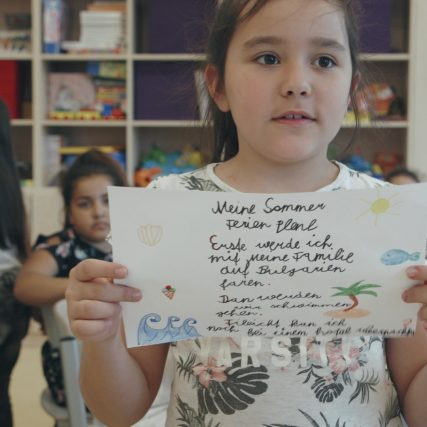 Meine Sommer
Ferien Plenl
Erste werde ich
mit meine Familie
auf Bulgarien
faren.
Dan werden
wir schwimmen
gehen.
kan ich
noch bei einem